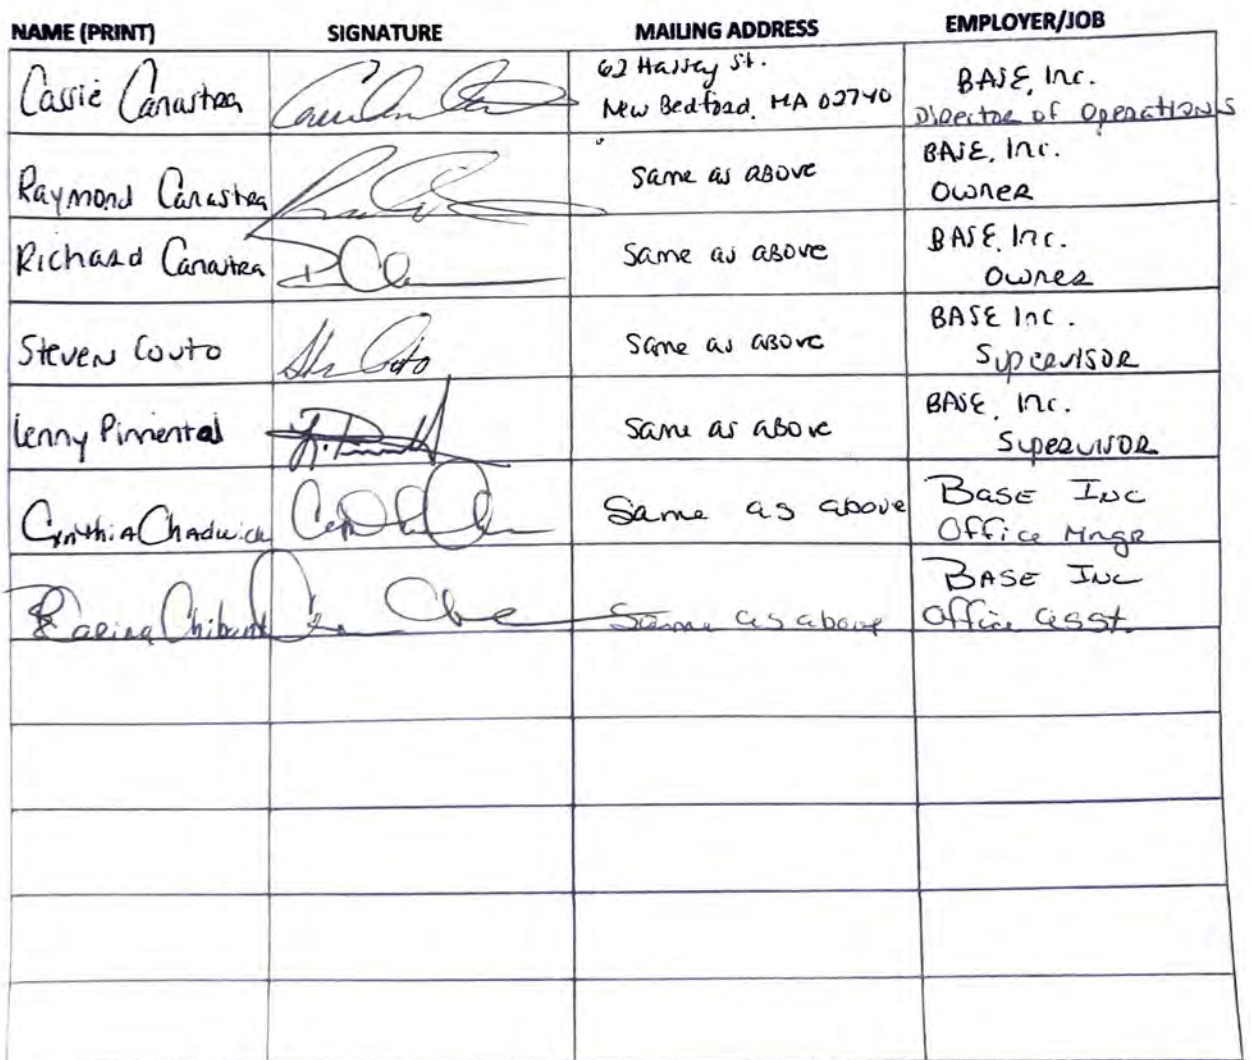 NAME (PRINT) SIGNATURE MAILING ADDRESS EMPLOYER/JOB
Cassie Canastra 62 Hassey St. BASE, Inc.
New Bedford, MA 02740 Director of Operations
Raymond Canastra Same as above BASE, Inc.
Owner
Richard Canastra Same as above BASE, Inc.
Owner
Steven Couto Same as above BASE Inc.
Supervisor
Lenny Pimental Same as above BASE, Inc.
Supervisor
Cynthia Chadwick Same as above Base Inc
Office Mngr
Same as above BASE Inc
Office asst.